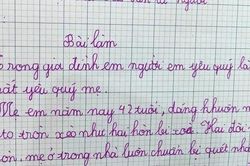 Bài làm
rong gia đình em người em yêu quý là
ất yêu quý mẹ.
Mẹ em năm nay 42 tuổi, dáng khuôn m
to tròn xéo như hai hòn bi xoa. Hai đôi
on, mẹ ở trong nhà luôn chuẩn bị quét nhà